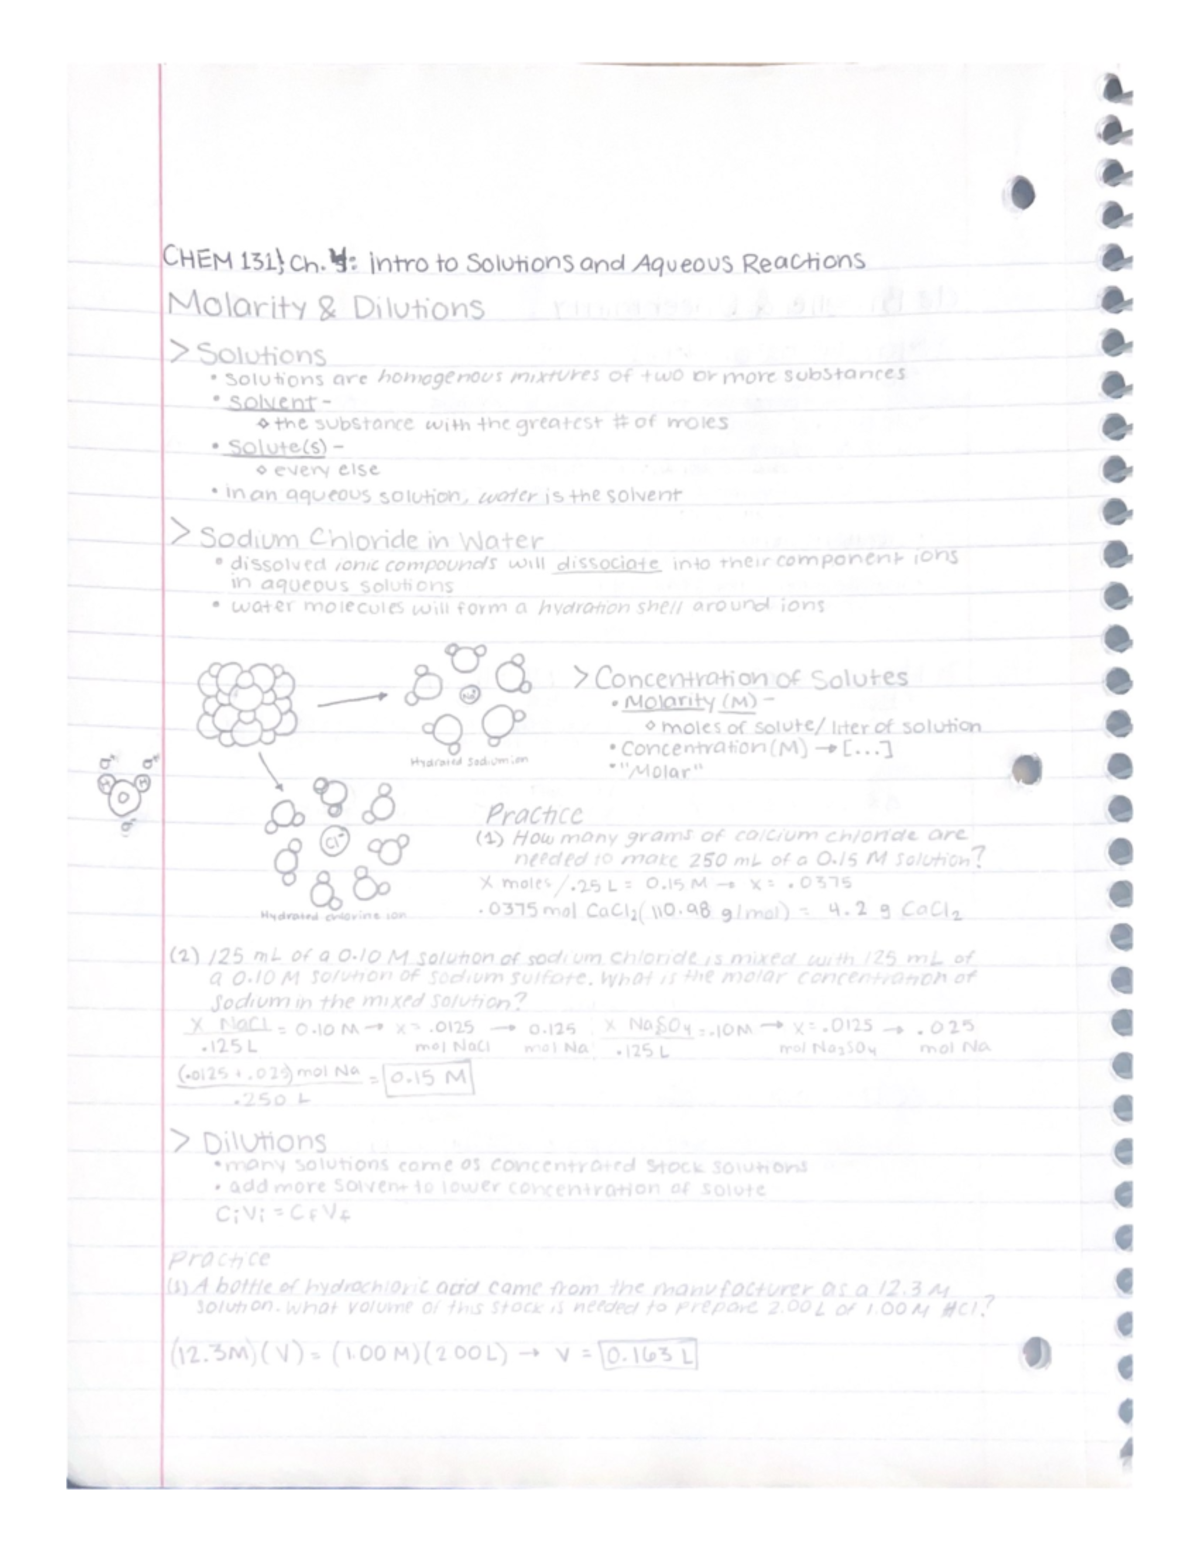 CHEM 131} Ch. 4: intro to Solutions and Aqueous Reactions
Molarity & Dilutions
> Solutions
• solutions are homogenous mixtures of two or more substances
• Solvent -
⋄ the substance with the greatest # of moles
• Solute(s) -
⋄ every else
• in an aqueous solution, water is the solvent
> Sodium Chloride in Water
• dissolved ionic compounds will dissociate into their component ions
in aqueous solutions
• water molecules will form a hydration shell around ions
Na⁺
Hydrated sodium ion
H H
O
Cl⁻
Hydrated chlorine ion
> Concentration of Solutes
• Molarity (M) -
⋄ moles of solute/liter of solution
• Concentration (M) → [...]
• "Molar"
Practice
(1) How many grams of calcium chloride are
needed to make 250 mL of a 0.15 M solution?
X moles/.25 L = 0.15 M → x = .0375
.0375 mol CaCl₂ (110.98 g/mol) = 4.2 g CaCl₂
(2) 125 mL of a 0.10 M solution of sodium chloride is mixed with 125 mL of
a 0.10 M solution of sodium sulfate. What is the molar concentration of
sodium in the mixed solution?
X NaCl = 0.10 M → x = .0125 → 0.125 X NaSO₄ = .10M → x = .0125 → .025
.125 L mol NaCl mol Na .125 L mol Na₂SO₄ mol Na
(.0125 + .025) mol Na = 0.15 M
.250 L
> Dilutions
• many solutions come as concentrated stock solutions
• add more solvent to lower concentration of solute
CᵢVᵢ = C_fV_f
Practice
(3) A bottle of hydrochloric acid came from the manufacturer as a 12.3 M
solution. What volume of this stock is needed to prepare 2.00 L of 1.00 M HCl?
(12.3M)(V) = (1.00 M)(2.00L) → V = 0.163 L